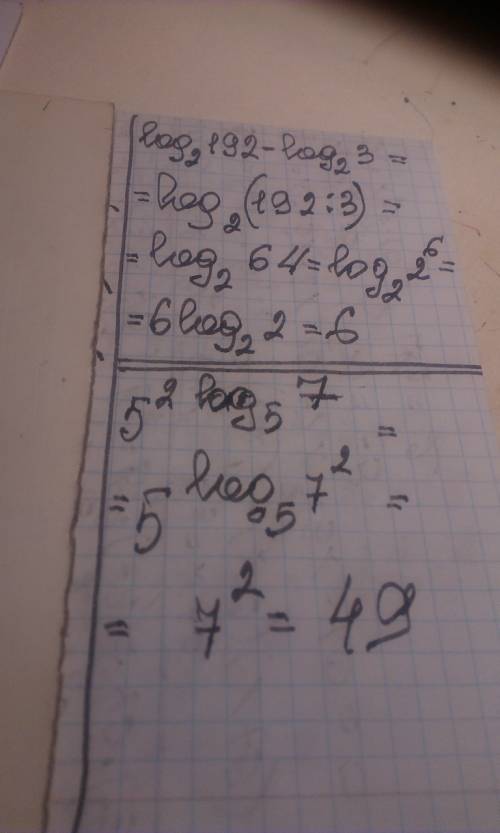 log₂192 - log₂3 =
= log₂(192:3) =
= log₂ 64 = log₂2⁶ =
= 6log₂2 = 6
5² log₅7 =
= 5 log₅7² =
= 7² = 49